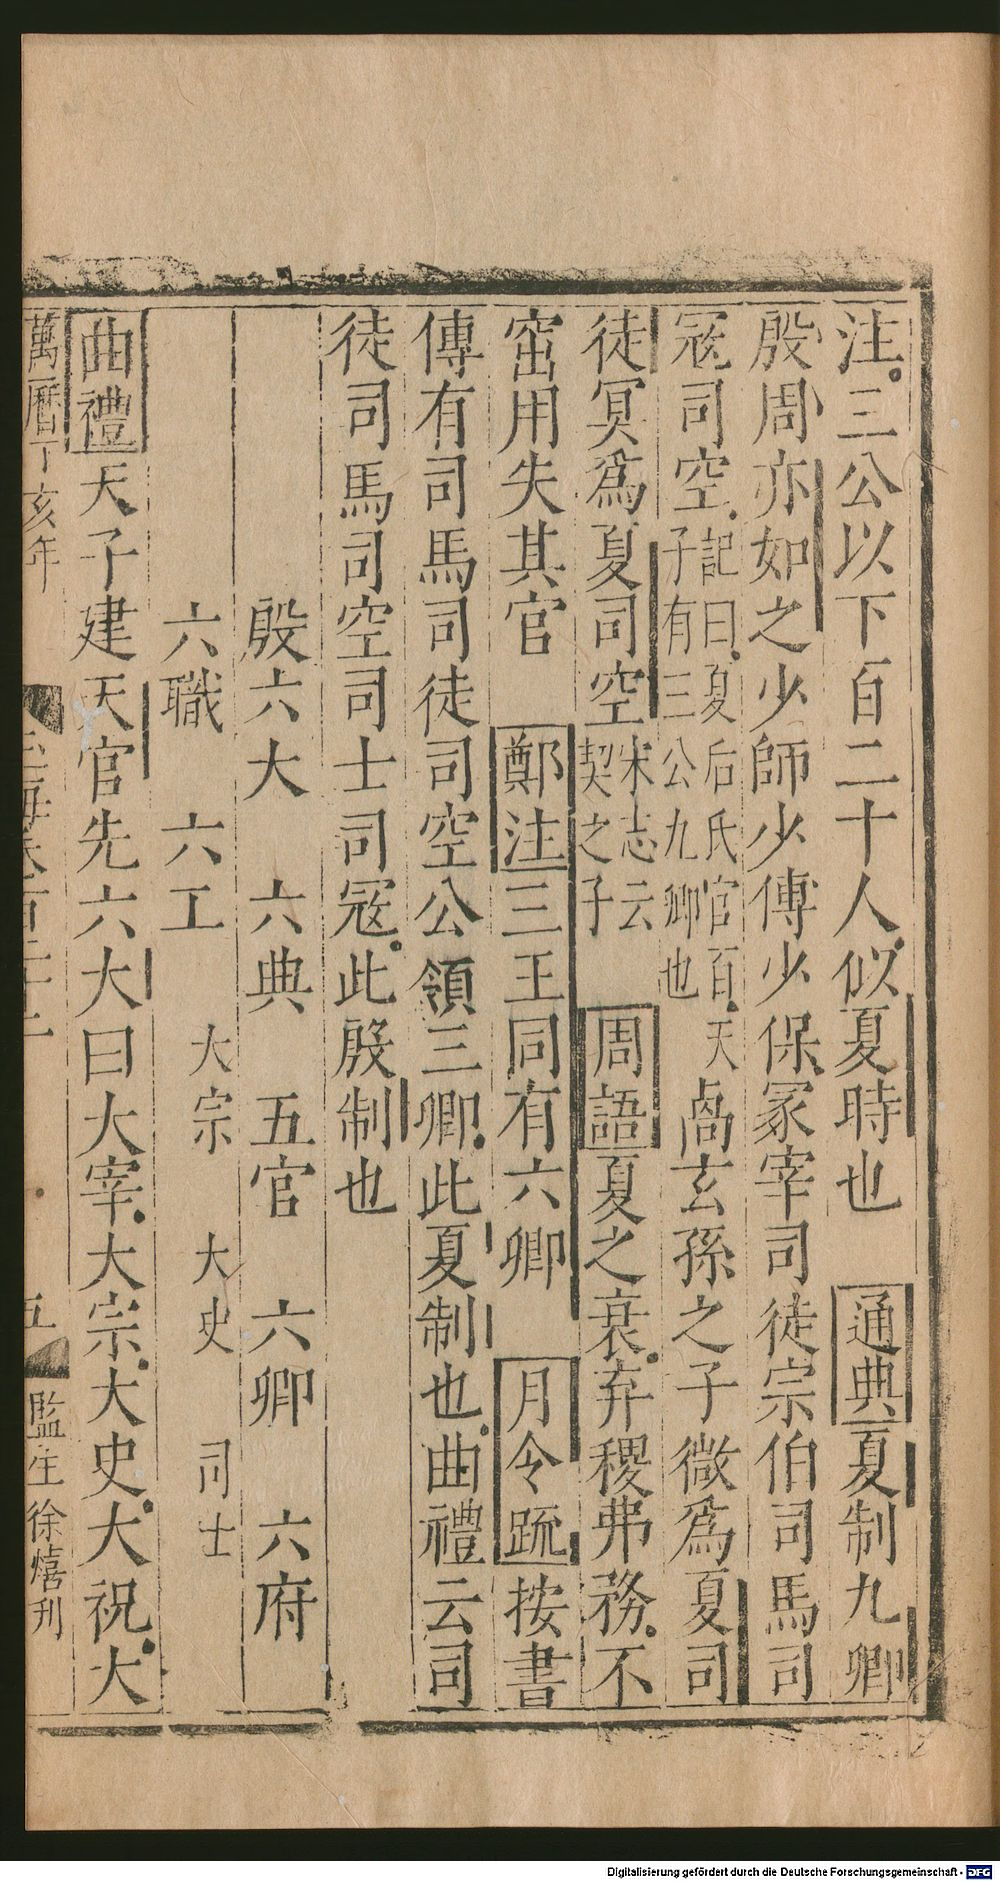 注三公以下百二十人似夏時也　通典夏制九卿
殷周亦如之少師少傅少保冢宰司徒宗伯司馬司
寇司空記曰夏后氏官百天子有三公九卿也　卨玄孫之子微爲夏司
徒冥爲夏司空宋志云契之子　周語夏之衰弃稷弗務不
窋用失其官　鄭注三王同有六卿　月令疏按書
傳有司馬司徒司空公領三卿此夏制也曲禮云司
徒司馬司空司士司寇此殷制也
殷六大　六典　五官　六卿　六府
六職　六工　大宗　大史　司士
曲禮天子建天官先六大曰大宰大宗大史大祝大
萬曆丁亥年　玉海卷百二十二　五　監生徐熺刋
Digitalisierung gefördert durch die Deutsche Forschungsgemeinschaft - DFG